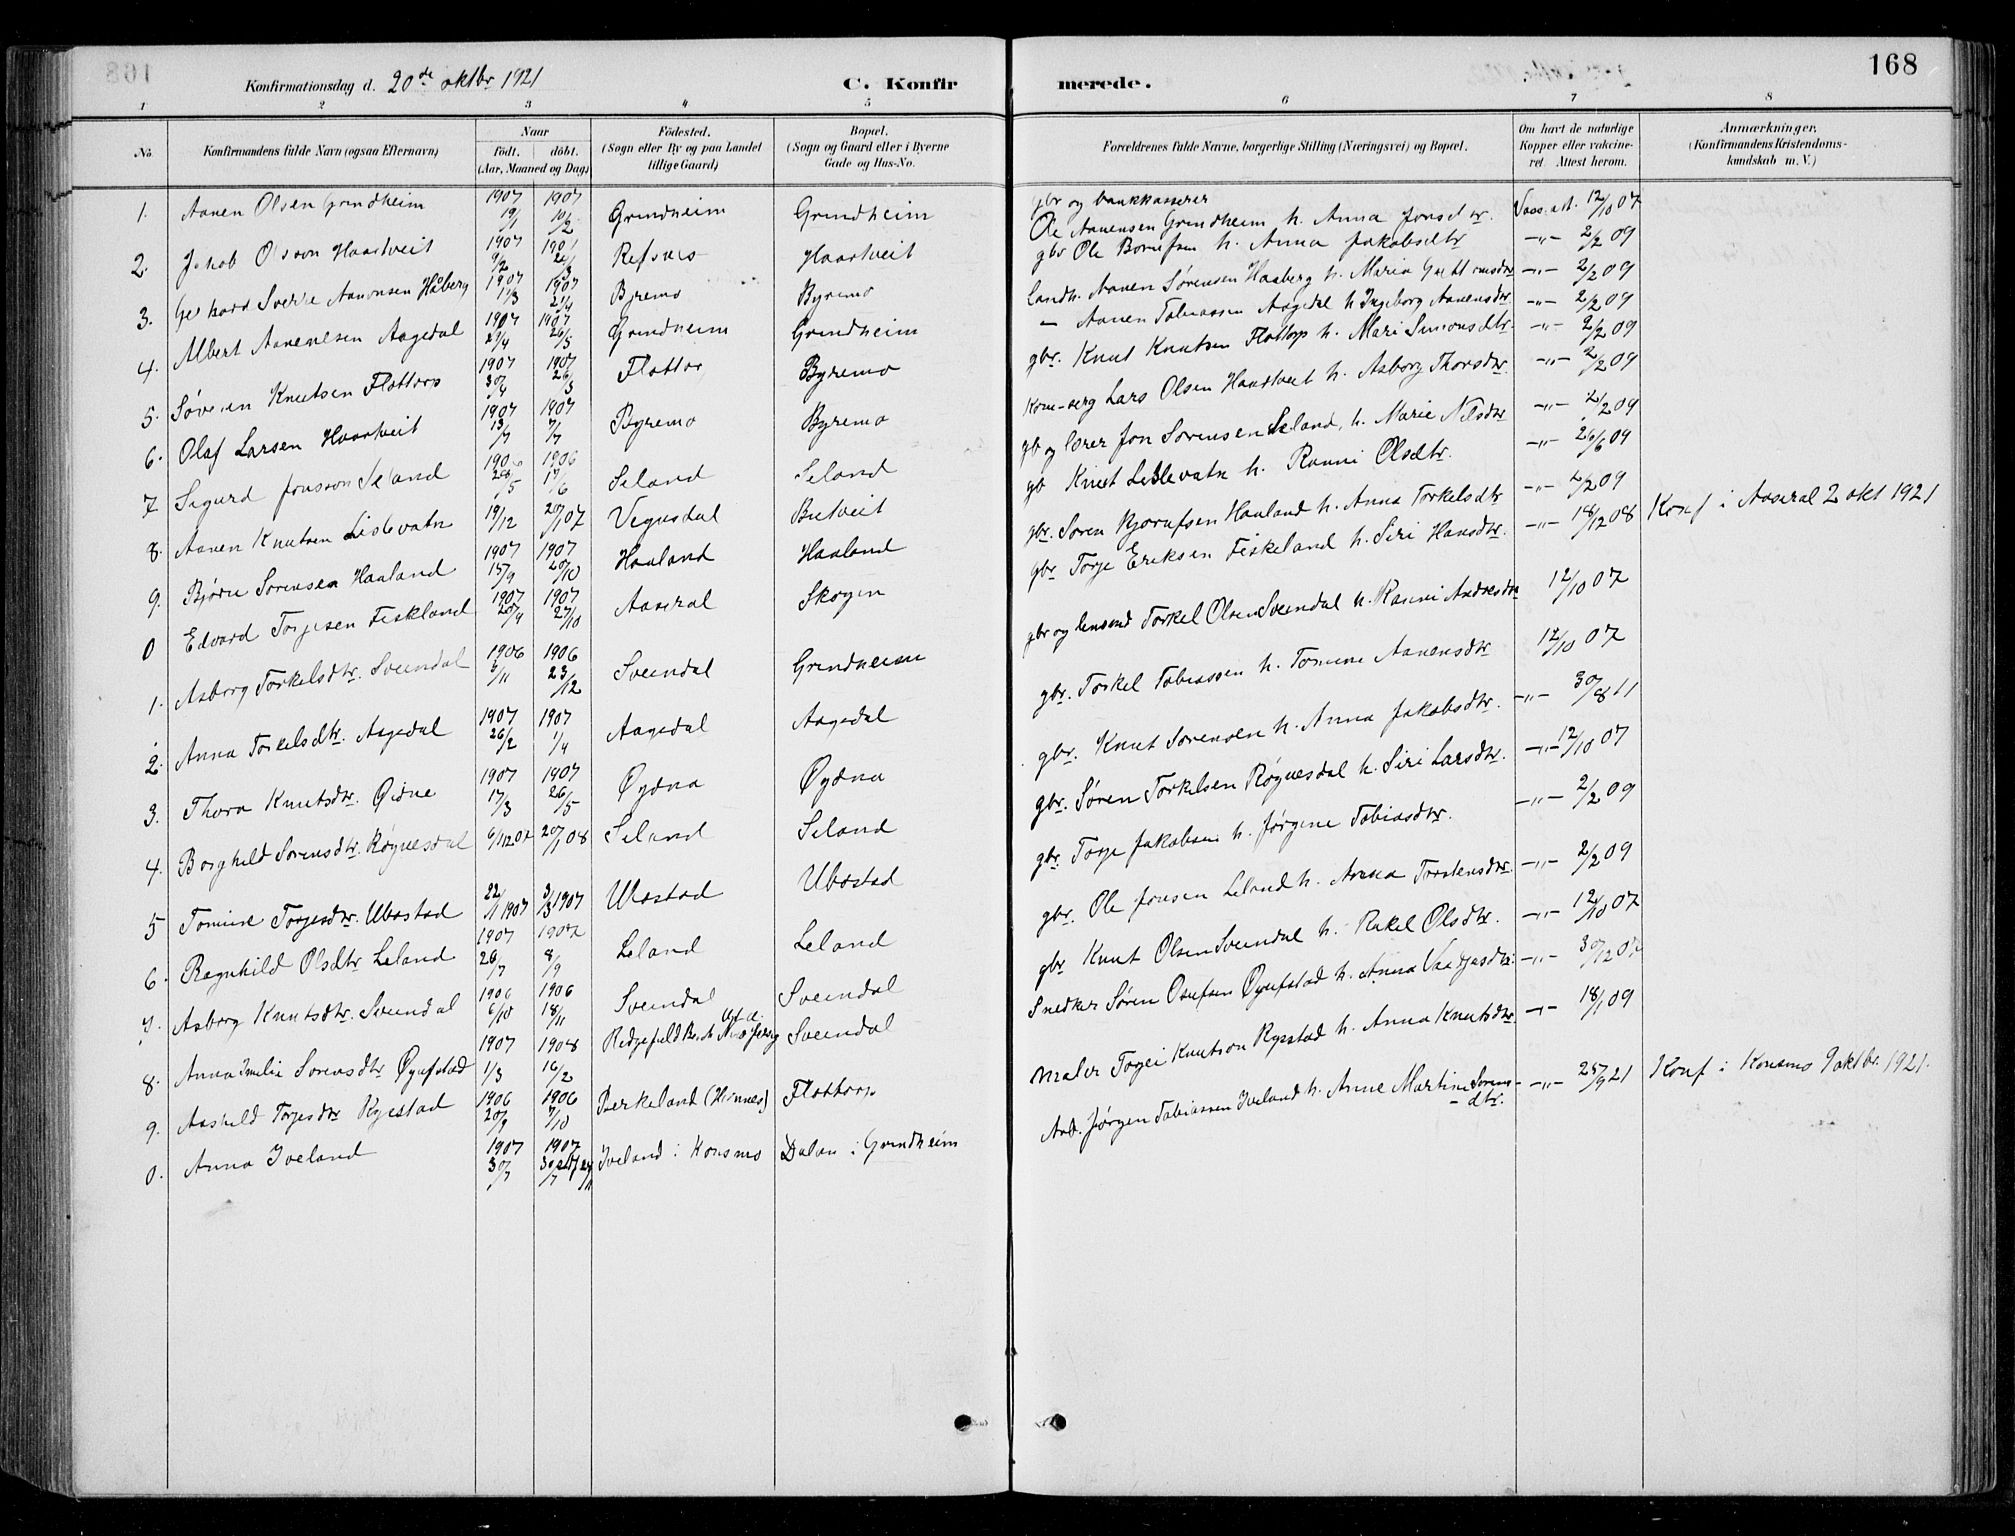 168
Konfirmationsdag d. 20de oktbr 1921
C. Konfirmerede.
1 2 3 4 5 6 7 8
No.
Konfirmandens fulde Navn (ogsaa Efternavn)
Naar
födt. döbt.
(Aar, Maaned og Dag)
Födested.
(Sogn eller By og paa Landet tillige Gaard)
Bopæl.
(Sogn og Gaard eller i Byerne Gade og Hus-No.
Forældrenes fulde Navne, borgerlige Stilling (Næringsvei) og Bopæl.
Om havt de naturlige Kopper eller vaccineret. Attest herom.
Anmærkninger.
(Konfirmandens Kristendomskundskab m. V.)
1. Aanen Olsen Grindheim 1907 19/1 1907 10/2 Grindheim Grindheim gbr og bankkasserer Ole Aanensen Grindheim h. Anna Jonsdtr. Vacc. att. 12/10 07
2. Jakob Olsson Haartveit 1907 9/2 Refsnes Haartveit gbr Ole Bornfsen h. Anna Jakobsdtr -"- 2/2 09
3. Gerhard Sverre Aanonsen Håberg 1907 11/3 1907 21/4 Byremo Byremo Landh. Aanen Sørensen Haaberg h. Maria -"- 2/2 09
4. Albert Aanensen Aagedal 1907 21/4 1907 26/5 Grindheim Grindheim - Aanen Tobiassen Aagedal h Ingeborg Aanensdtr -"- 2/2 09
5. Søren Knutsen Flottorp 1907 30/4 1907 26/5 Flottor Byremo gbr. Knut Knutsen Flottorp h. Mari Simonsdtr. -"- 2/2 09
6. Olaf Larsen Haartveit 1907 13/ 1907 7/7 Byremo Byremo Lars Olsen Haartveit h. Asborg Thorsdtr. -"- 2/2 09
7 Sigurd Jonsson Seland 1906 28/5 1906 17/6 Seland Seland gb og lærer Jon Sørensen Seland, h. Marie Nilsdtr -"- 2/2 09
8. Aanen Knutsen Lislevatn 19/12 20/1 07 Vegusdal Butveit gb Knut Lislevatn h. Ranni Olsdtr. -"- 26/6 09
9. Bjørn Sorensen Haaland 1907 15/9 1907 20/10 Haaland Haaland gbr. Soren Bjornfsen Haaland h. Anna Torkelsdtr -"- 2/2 09
0 Edvard Torjesen Fiskland 1907 20/9 1907 27/10 Aaseral Skogen gbr Torje Eriksen Fiskeland h. Siri Hansdtr. -"- 18/12 08 Konf i Aaseral 2 okt 1921
1. Asborg Torkelsdtr. Sveindal 1906 3/11 1906 23/12 Sveindal Grindheim gbr og lensmd Torkel Olsen Sveindal h. Ranni Andresdtr 12/10 07
2. Anna Torkelsdtr. Aagedal 1907 26/2 1907 1/4 Aagedal Aagedal gbr. Torkel Tobiassen h. Tomine Aanensdtr 12/10 07
3. Thora Knutsdtr. Øidne 1907 17/3 1907 26/5 Øydna Øydna gbr. Knut Sorensen h. Anna Jakobsdtr. -"- 30/8 11
4. Borghild Sorensdtr. Røynesdal 6/12 07 20/1 08 Seland Seland gbr. Søren Torkelsen Røynesdal h. Siri Larsdtr. -"- 12/10 07
5 Tomine Torjesdtr. Ubostad 22/1 1907 3/3 1907 Ubostad Ubostad gbr. Torje Jakobsen h. Jørgine Tobiasdtr. -"- 2/2 09
6. Ragnhild Olsdtr Leland 1907 26/7 1907 8/9 Leland Leland gbr. Ole Jonsen Leland h. Anna Torstensdtr. -"- 2/2 09
7. Asborg Knutsdtr. Sveindal 1906 6/10 1906 18/11 Sveindal Sveindal gbr Knut Olsen Sveindal h. Rakel Olsdtr. -"- 12/10 07
8. Anna Emelie Sorensdtr Øynfstad 1907 1/3 1908 16/2 Sveindal Snedker Søren Osufsen Øynfstad h. Anna -"- 30/12 07
9. Aashild Torjesdtr Rysstad 1906 20/9 1906 7/10 Berkeland (Hinnes) Flottorp maler Torjei Knutson Rysstad h. Anna Knutsdtr. -"- 18/1 09
0. Anna Iveland 1907 30/7 1907 Iveland i Konsmo Dalen i Grindheim Arb. Jørgen Tobiassen Iveland h. Anne Martine Sorensdtr. -"- 25/9 21 Konf i Konsmo 9 oktbr. 1921.